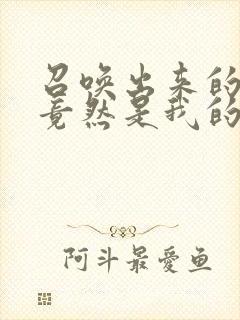 召唤出来的
竟然是我的
阿斗最愛鱼